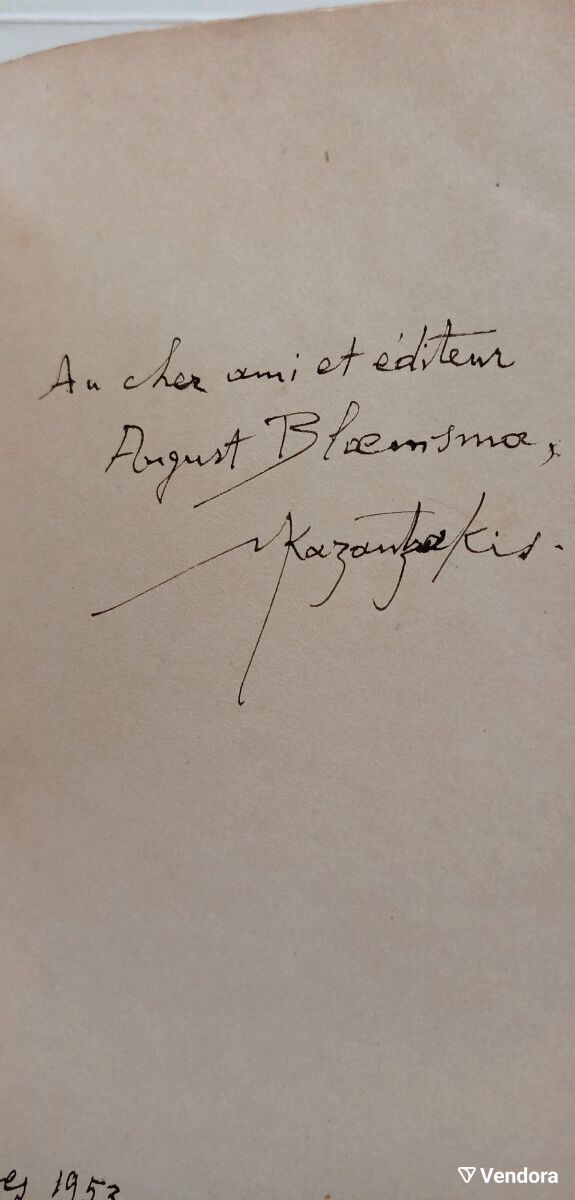 Au cher ami et éditeur
August Blœmsma,
NKazantzakis.
es 1953
Vendora